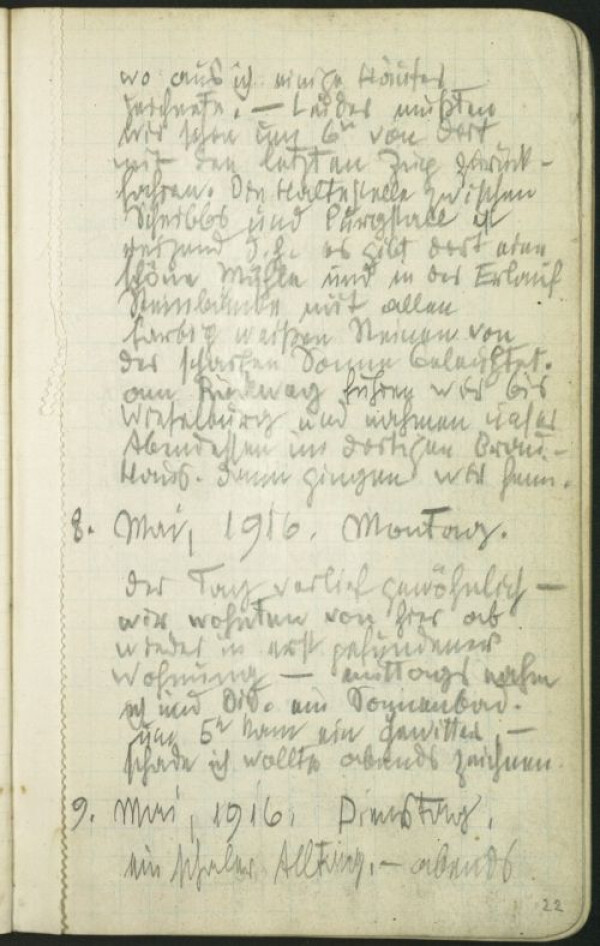 wo aus ich einige Häuser
zeichnete. — Leider mußten
wir schon um 6h von dort
mit den letzten Zug zurück-
fahren. Die Haltestelle zwischen
Scheibbs und Purgstall ist
reizend d.h. es gibt dort eine
schöne Mühle und in der Erlauf
Steinbänke mit allen
farbig weißen Steinen von
der scharfen Sonne beleuchtet.
am Rückweg fuhren wir bis
Wieselburg und nahmen unser
Abendessen im dortigen Brau-
Haus. Dann gingen wir heim.
8. Mai, 1916. Montag.
der Tag verlief gewöhnlich —
wir wohnten von hier ab
wieder in erst gefundener
Wohnung — mittags nahm
ich und Did. ein Sonnenbad.
um 5h kam ein Gewitter, —
schade ich wollte abends zeichnen
9. Mai, 1916. Dienstag.
ein schaler Alltag. — abends
22